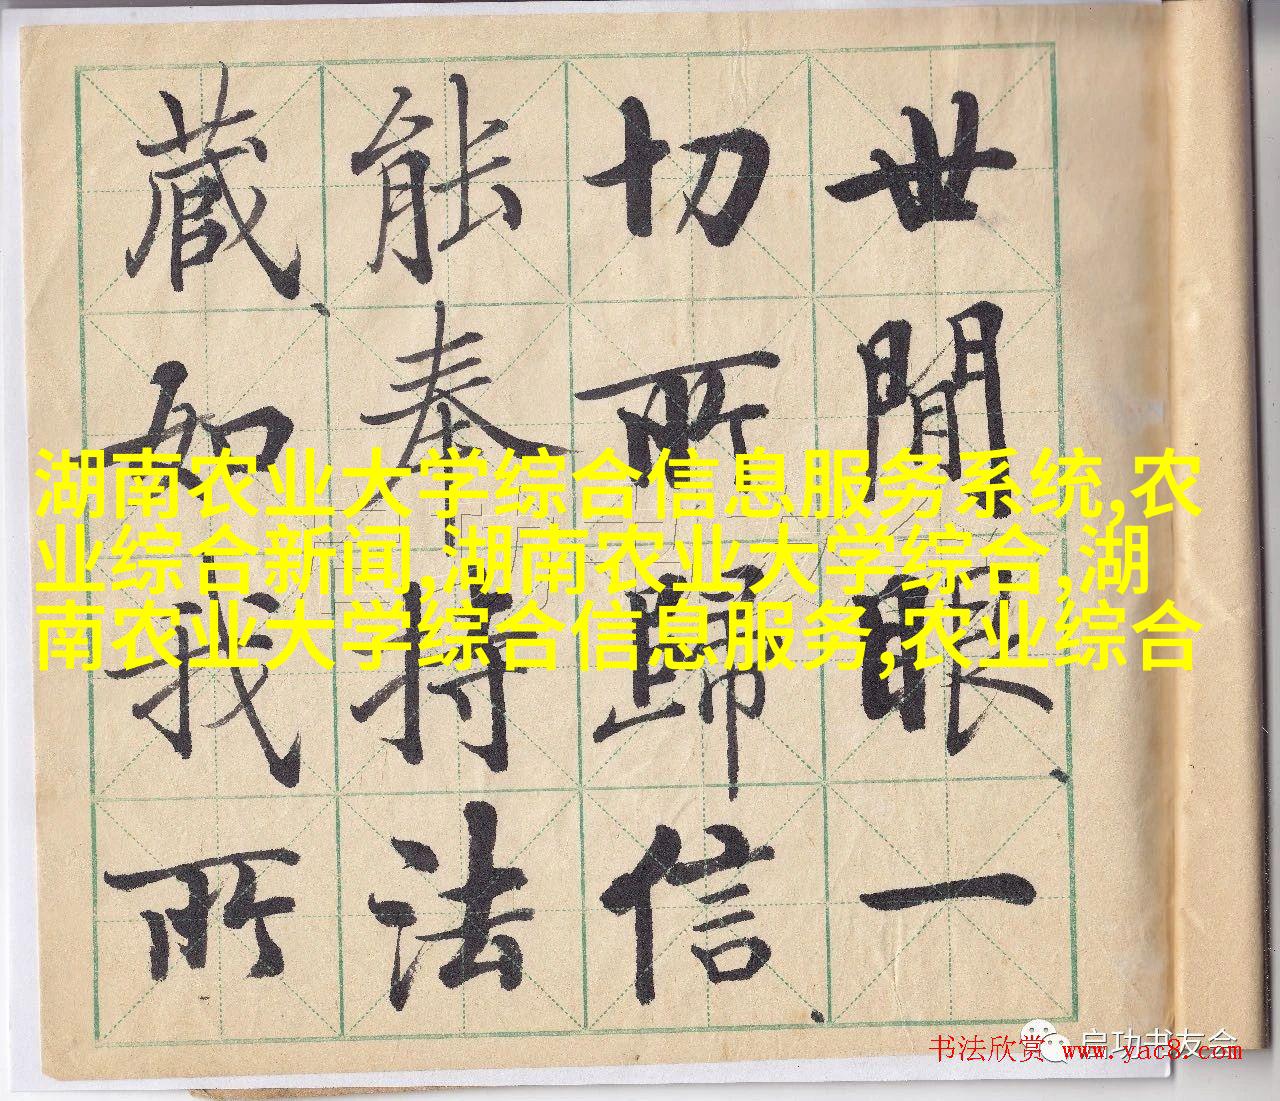 世間眼一
切所歸信
能奉持法
藏如我所
湖南农业大学综合信息服务系统,农
业综合新闻,湖南农业大学综合,湖
南农业大学综合信息服务,农业综合
书法欣赏 www.yac8.com
启功书友会